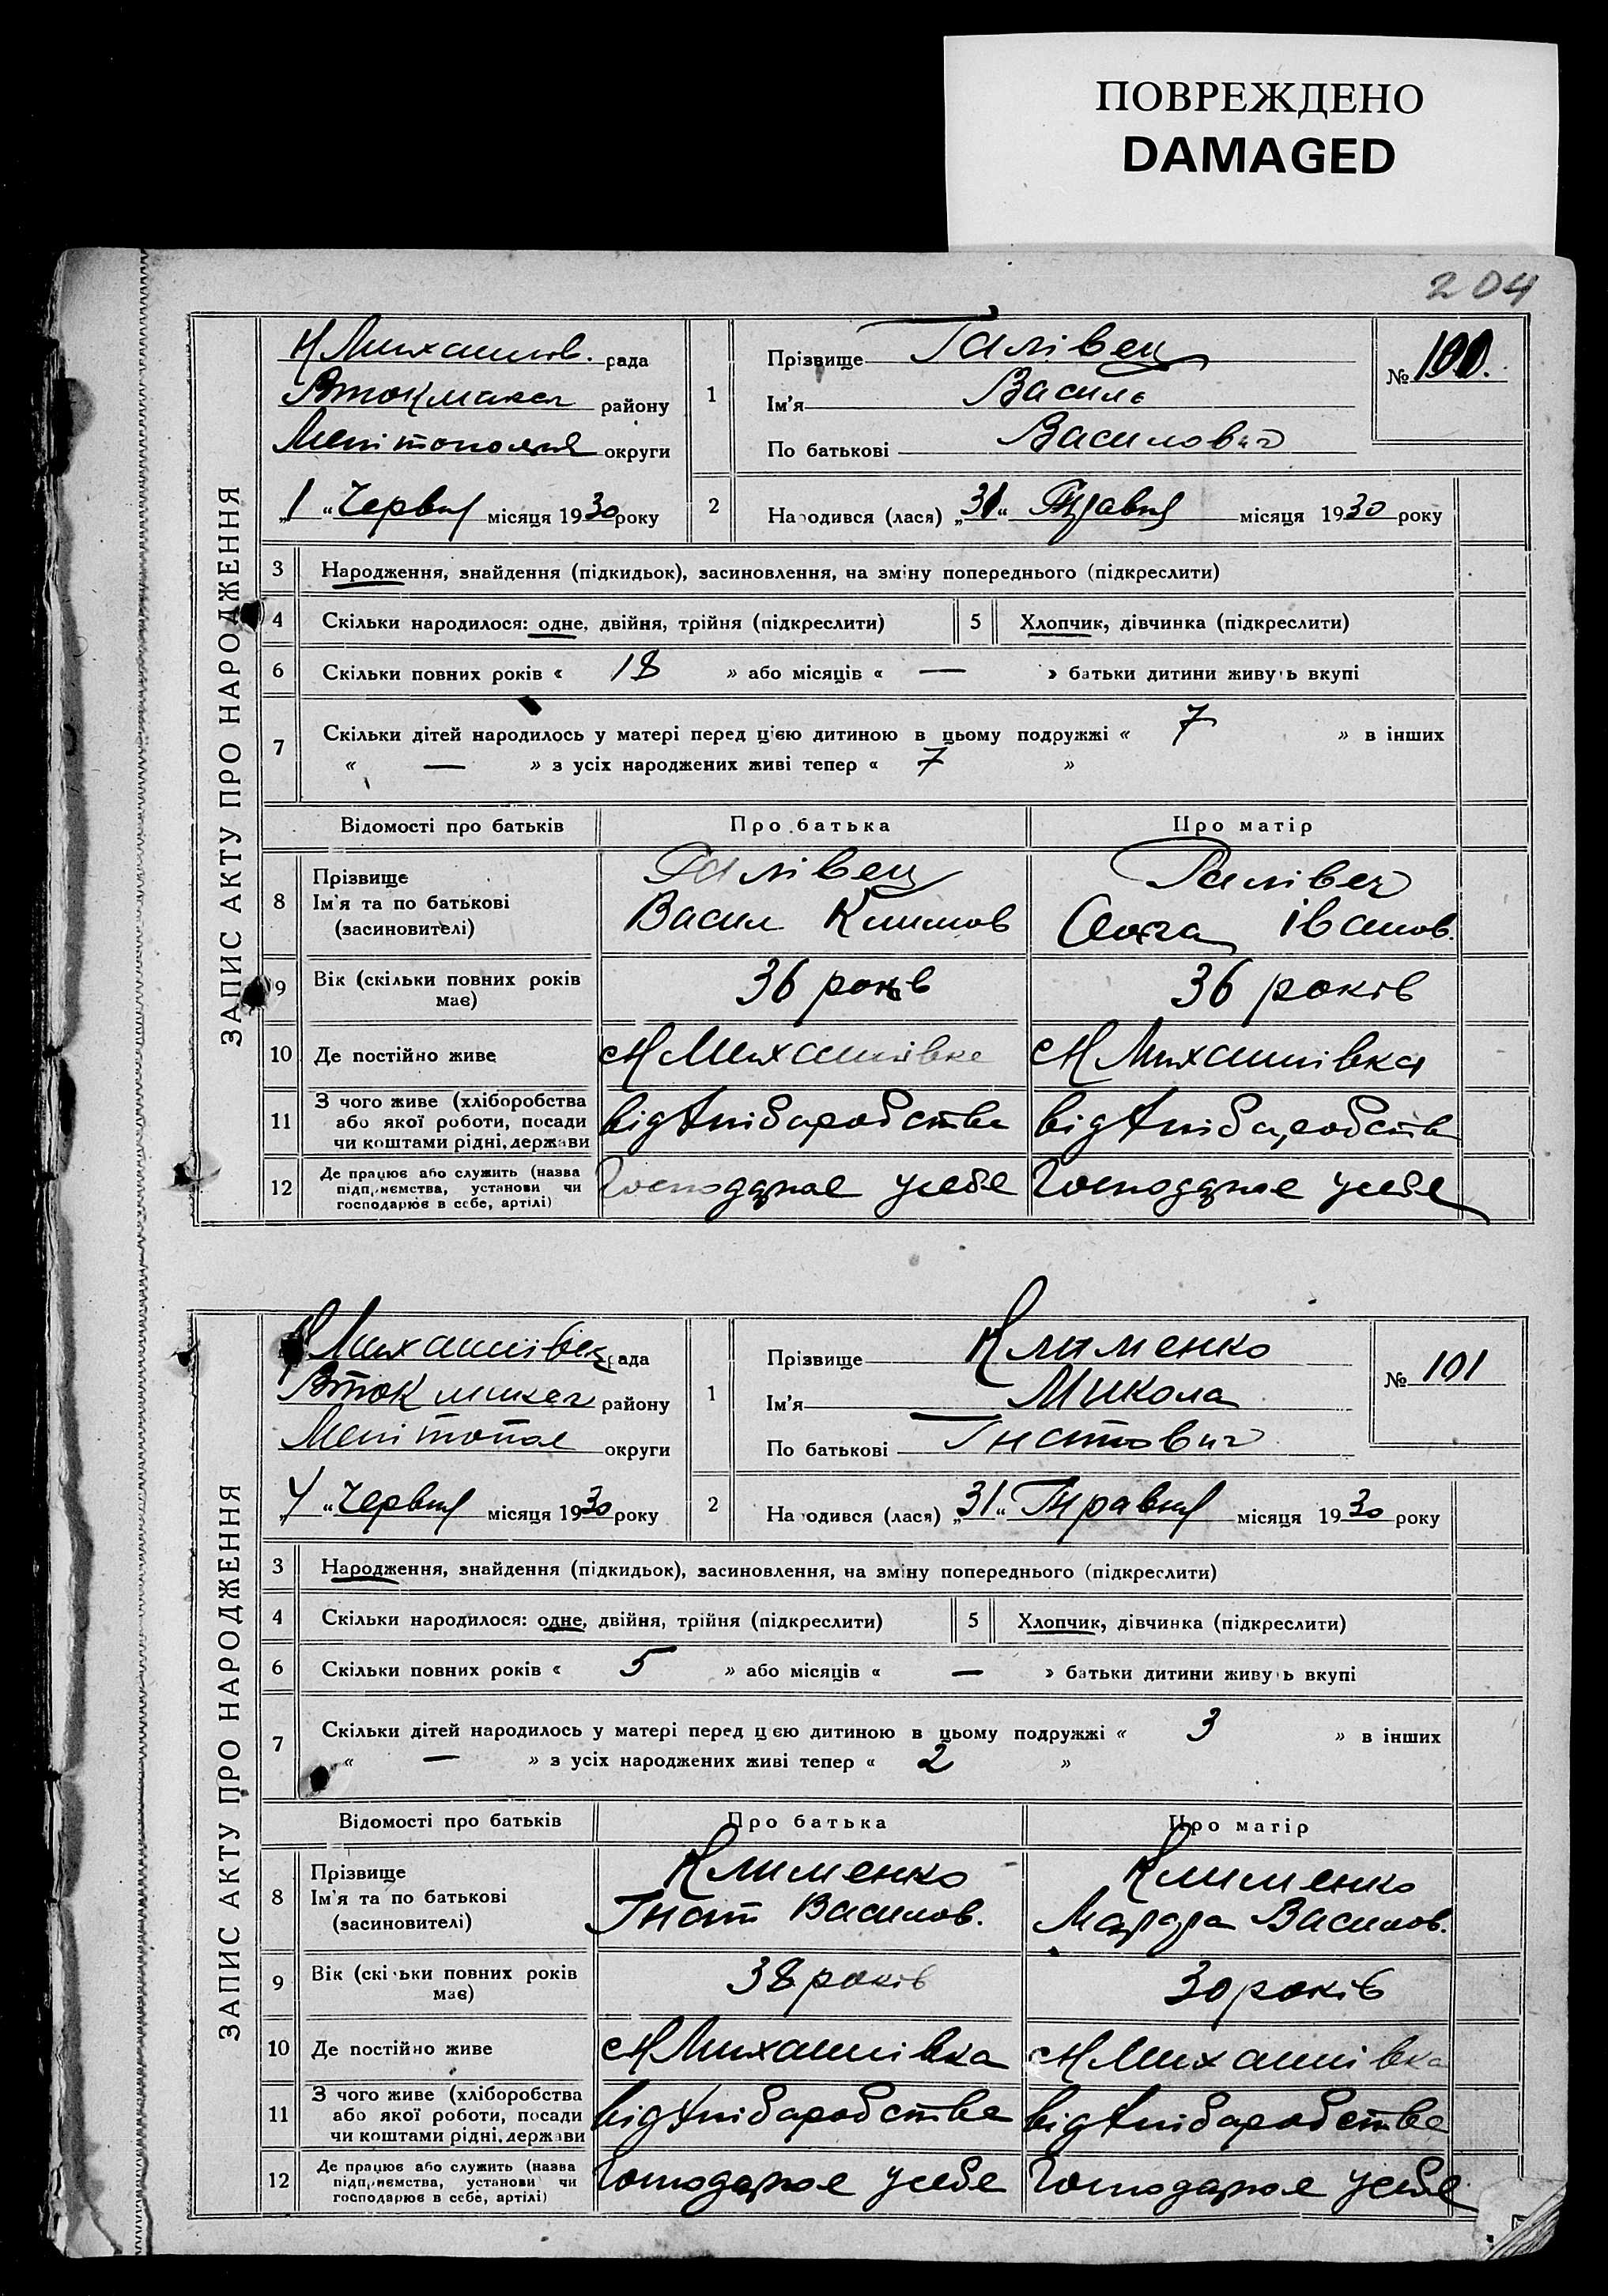 ПОВРЕЖДЕНО
DAMAGED
204
ЗАПИС АКТУ ПРО НАРОДЖЕННЯ
Н Михайлів. рада
Втокмакск району
Мелітопольск округи
„1“ Червня місяця 1930 року
1
Прізвище Галівец
Ім'я Василь
По батькові Василович
№ 100.
2
Народився (лася) „31“ Травня місяця 1930 року
3 Народження, знайдення (підкидьок), засиновлення, на зміну попереднього (підкреслити)
4 Скільки народилося: одне, двійня, трійня (підкреслити) 5 Хлопчик, дівчинка (підкреслити)
6 Скільки повних років « 18 » або місяців « — » батьки дитини живуть вкупі
7 Скільки дітей народилось у матері перед цією дитиною в цьому подружжі « 7 » в інших
« — » з усіх народжених живі тепер « 7 »
Відомості про батьків Про батька Про матір
8 Прізвище Ім'я та по батькові (засновителі)
Галівец Галівец
Васил Климов Іванов.
9 Вік (скільки повних років має) 36 років 36 років
10 Де постійно живе с Н Михайлівка с Н Михайлівка
11 З чого живе (хліборобства або якої роботи, посади чи коштами рідні, держави від хліборобства від хліборобства
12 Де працює або служить (назва підприємства, установи чи господарює в себе, артілі) Господарює у себе Господарює у себе
ЗАПИС АКТУ ПРО НАРОДЖЕННЯ
Н Михайлівск рада
Втокмакск району
Мелітопол округи
„4“ Червня місяця 1930 року
1
Прізвище Клименко
Ім'я Микола
По батькові Гнатович
№ 101
2
Народився (лася) „31“ Травня місяця 1930 року
3 Народження, знайдення (підкидьок), засиновлення, на зміну попереднього (підкреслити)
4 Скільки народилося: одне, двійня, трійня (підкреслити) 5 Хлопчик, дівчинка (підкреслити)
6 Скільки повних років « 5 » або місяців « — » батьки дитини живуть вкупі
7 Скільки дітей народилось у матері перед цією дитиною в цьому подружжі « 3 » в інших
« — » з усіх народжених живі тепер « 2 »
Відомості про батьків Про батька Про матір
8 Прізвище Ім'я та по батькові (засиновителі)
Клименко Клименко
Гнат Василов. Василов.
9 Вік (скільки повних років має) 38 років 30 років
10 Де постійно живе с Н Михайлівка с Н Михайлівка
11 З чого живе (хліборобства або якої роботи, посади чи коштами рідні, держави від хліборобства від хліборобства
12 Де працює або служить (назва підприємства, установи чи господарює в себе, артілі) Господарює у себе Господарює у себе